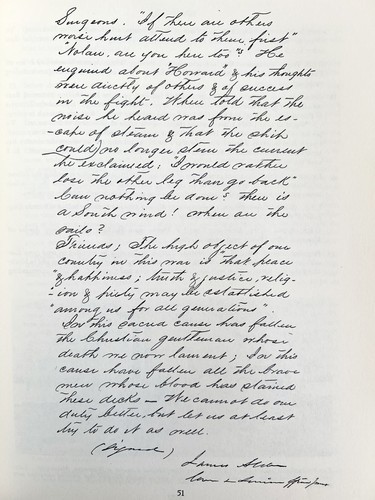 Surgeons. "If there are others
worse hurt attend to them first"
"Nolan, are you here too"? He
enquired about "Howard" & his thoughts
were directly of others & of success
in the fight. When told that the
noise he heard was from the es-
-cape of steam & that the ship
could no longer stem the current
he exclaimed; "I would rather
lose the other leg than go back"
Can nothing be done? there is
a South wind! where are the
sails?
Friends; The high object of our
country in this war is "that peace
"& happiness; truth & justice, relig-
-ion & piety may be established
"among us for all generations".
In this sacred cause has fallen
the Christian gentleman whose
death we now lament; In this
cause have fallen all the brave
men whose blood has stained
these decks — We cannot do our
duty better, but let us at least
try to do it as well.
(Signed)
James Alden
51